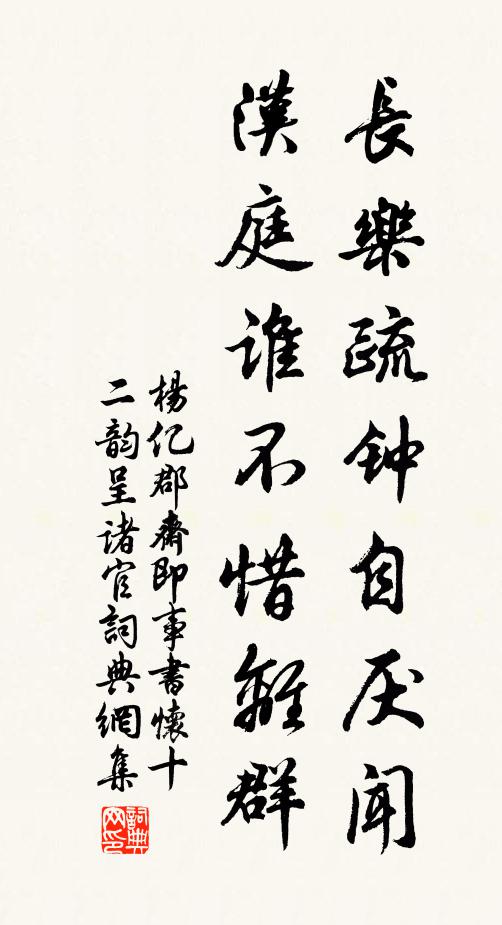 長樂疏钟自厌聞
漢庭谁不惜離群
楊亿郡齋即事書懷十
二韵呈诸官詞典網集
詞典网印